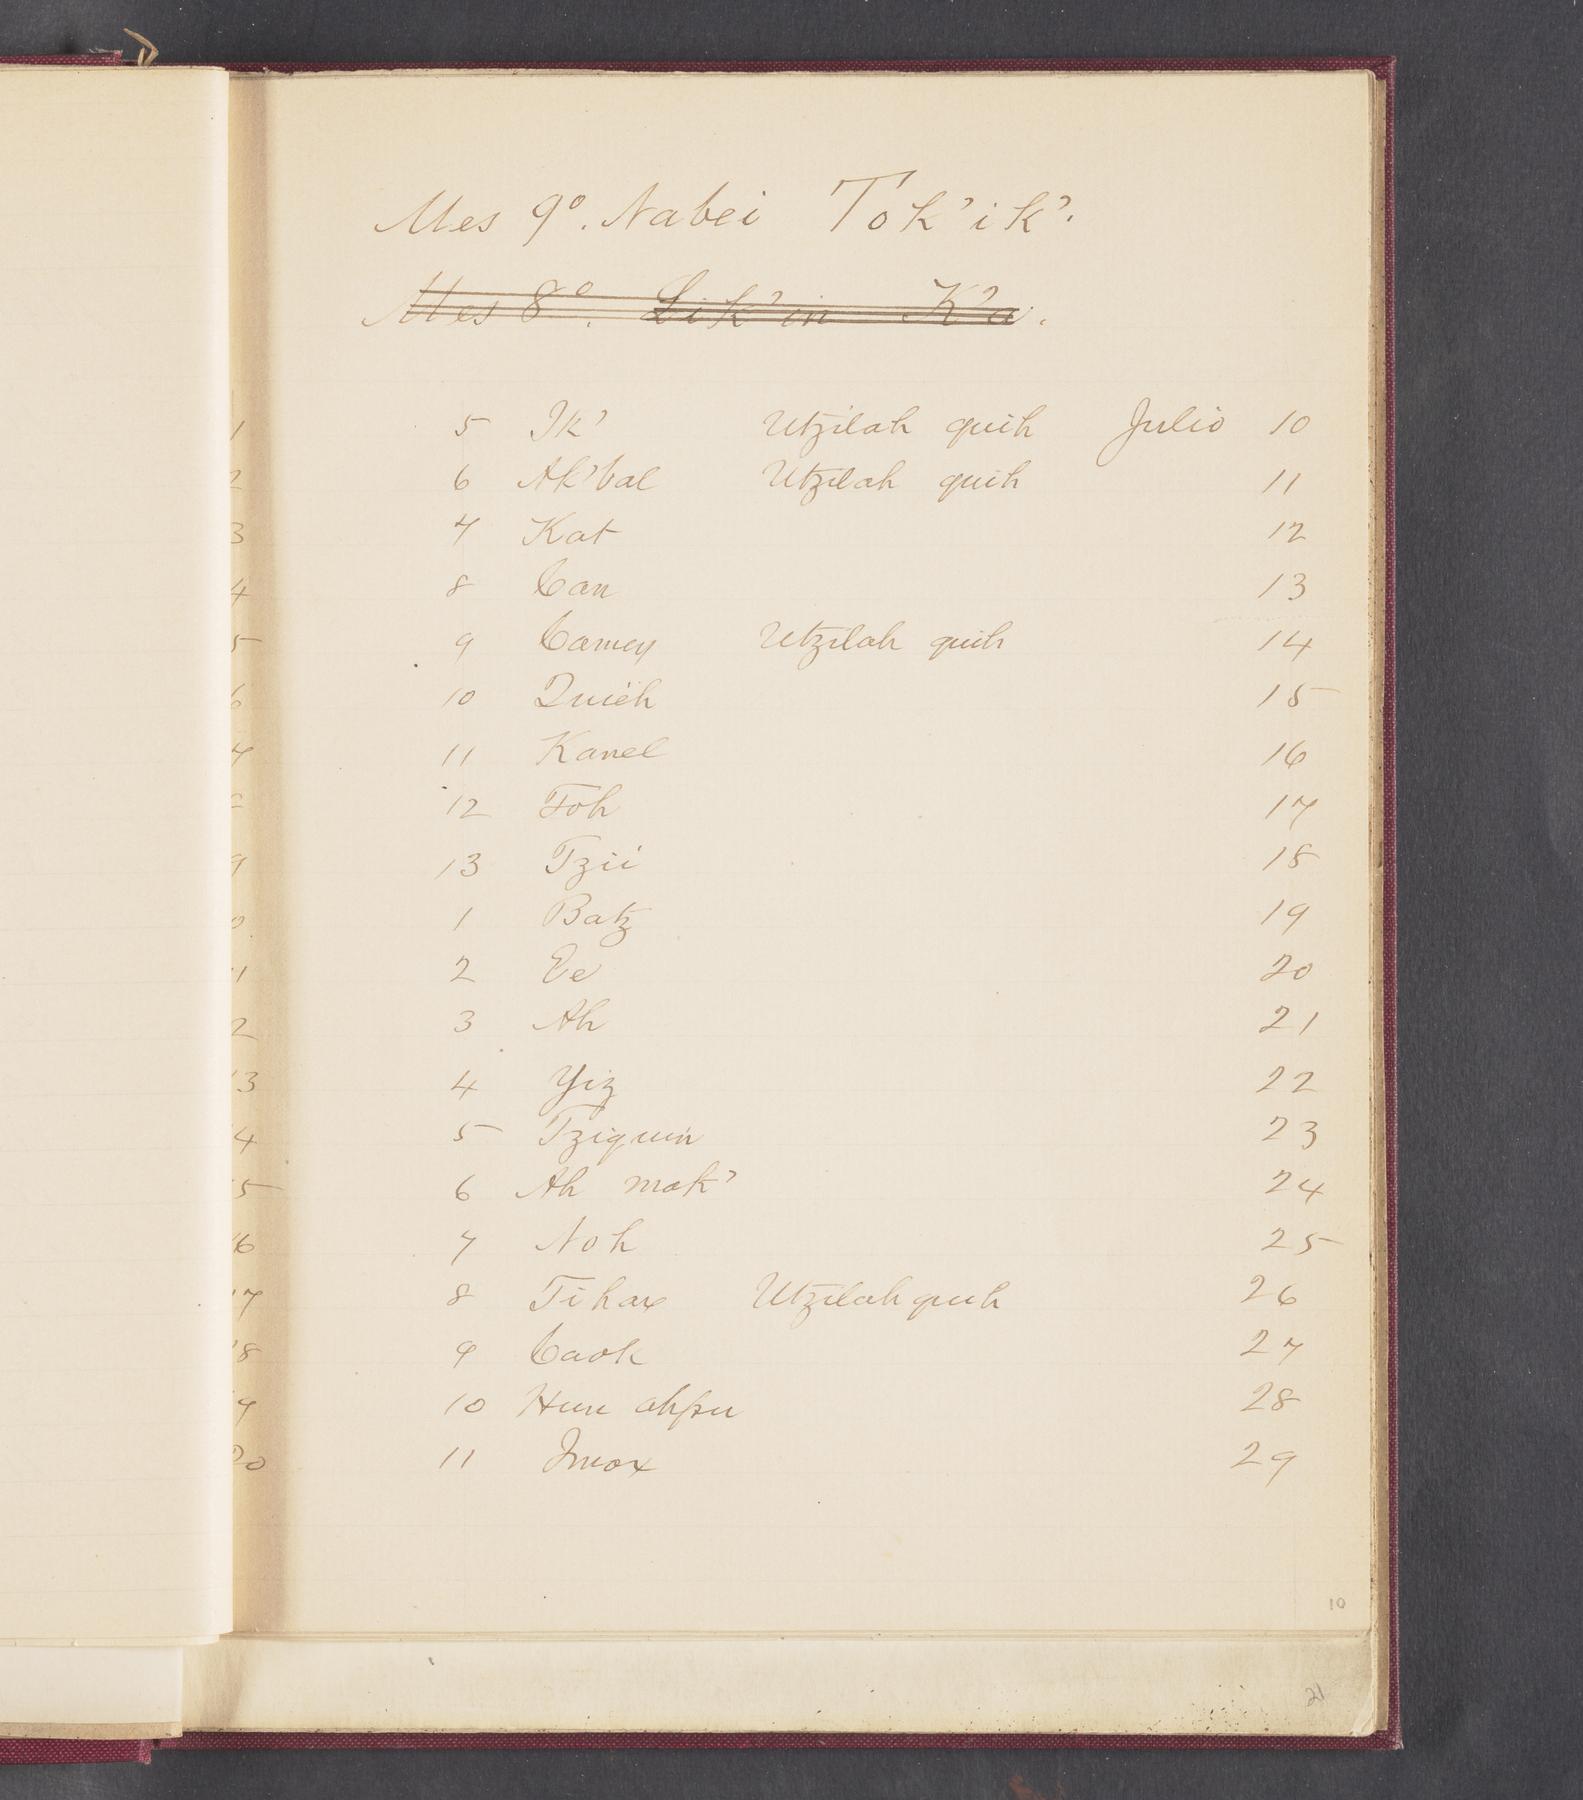 Mes 9º. Nabei Tok'ik'.
Mes 8º. Lik'in K'a.
1 5 Ik' Utzilah quih Julio 10
2 6 Ak'bal Utzilah quih 11
3 7 Kat 12
4 8 Can 13
5 9 Camey Utzilah quih 14
6 10 Quieh 15
7 11 Kanel 16
12 Toh 17
9 13 Tzii 18
0. 1 Batz 19
11 2 Ee 20
2 3 Ah 21
13 4 Yiz 22
14 5 Tziquin 23
15 6 Ah mak' 24
16 7 Noh 25
17 8 Tihax Utzilah quih 26
18 9 Caok 27
19 10 Hun ahpu 28
20 11 Imox 29
10
21